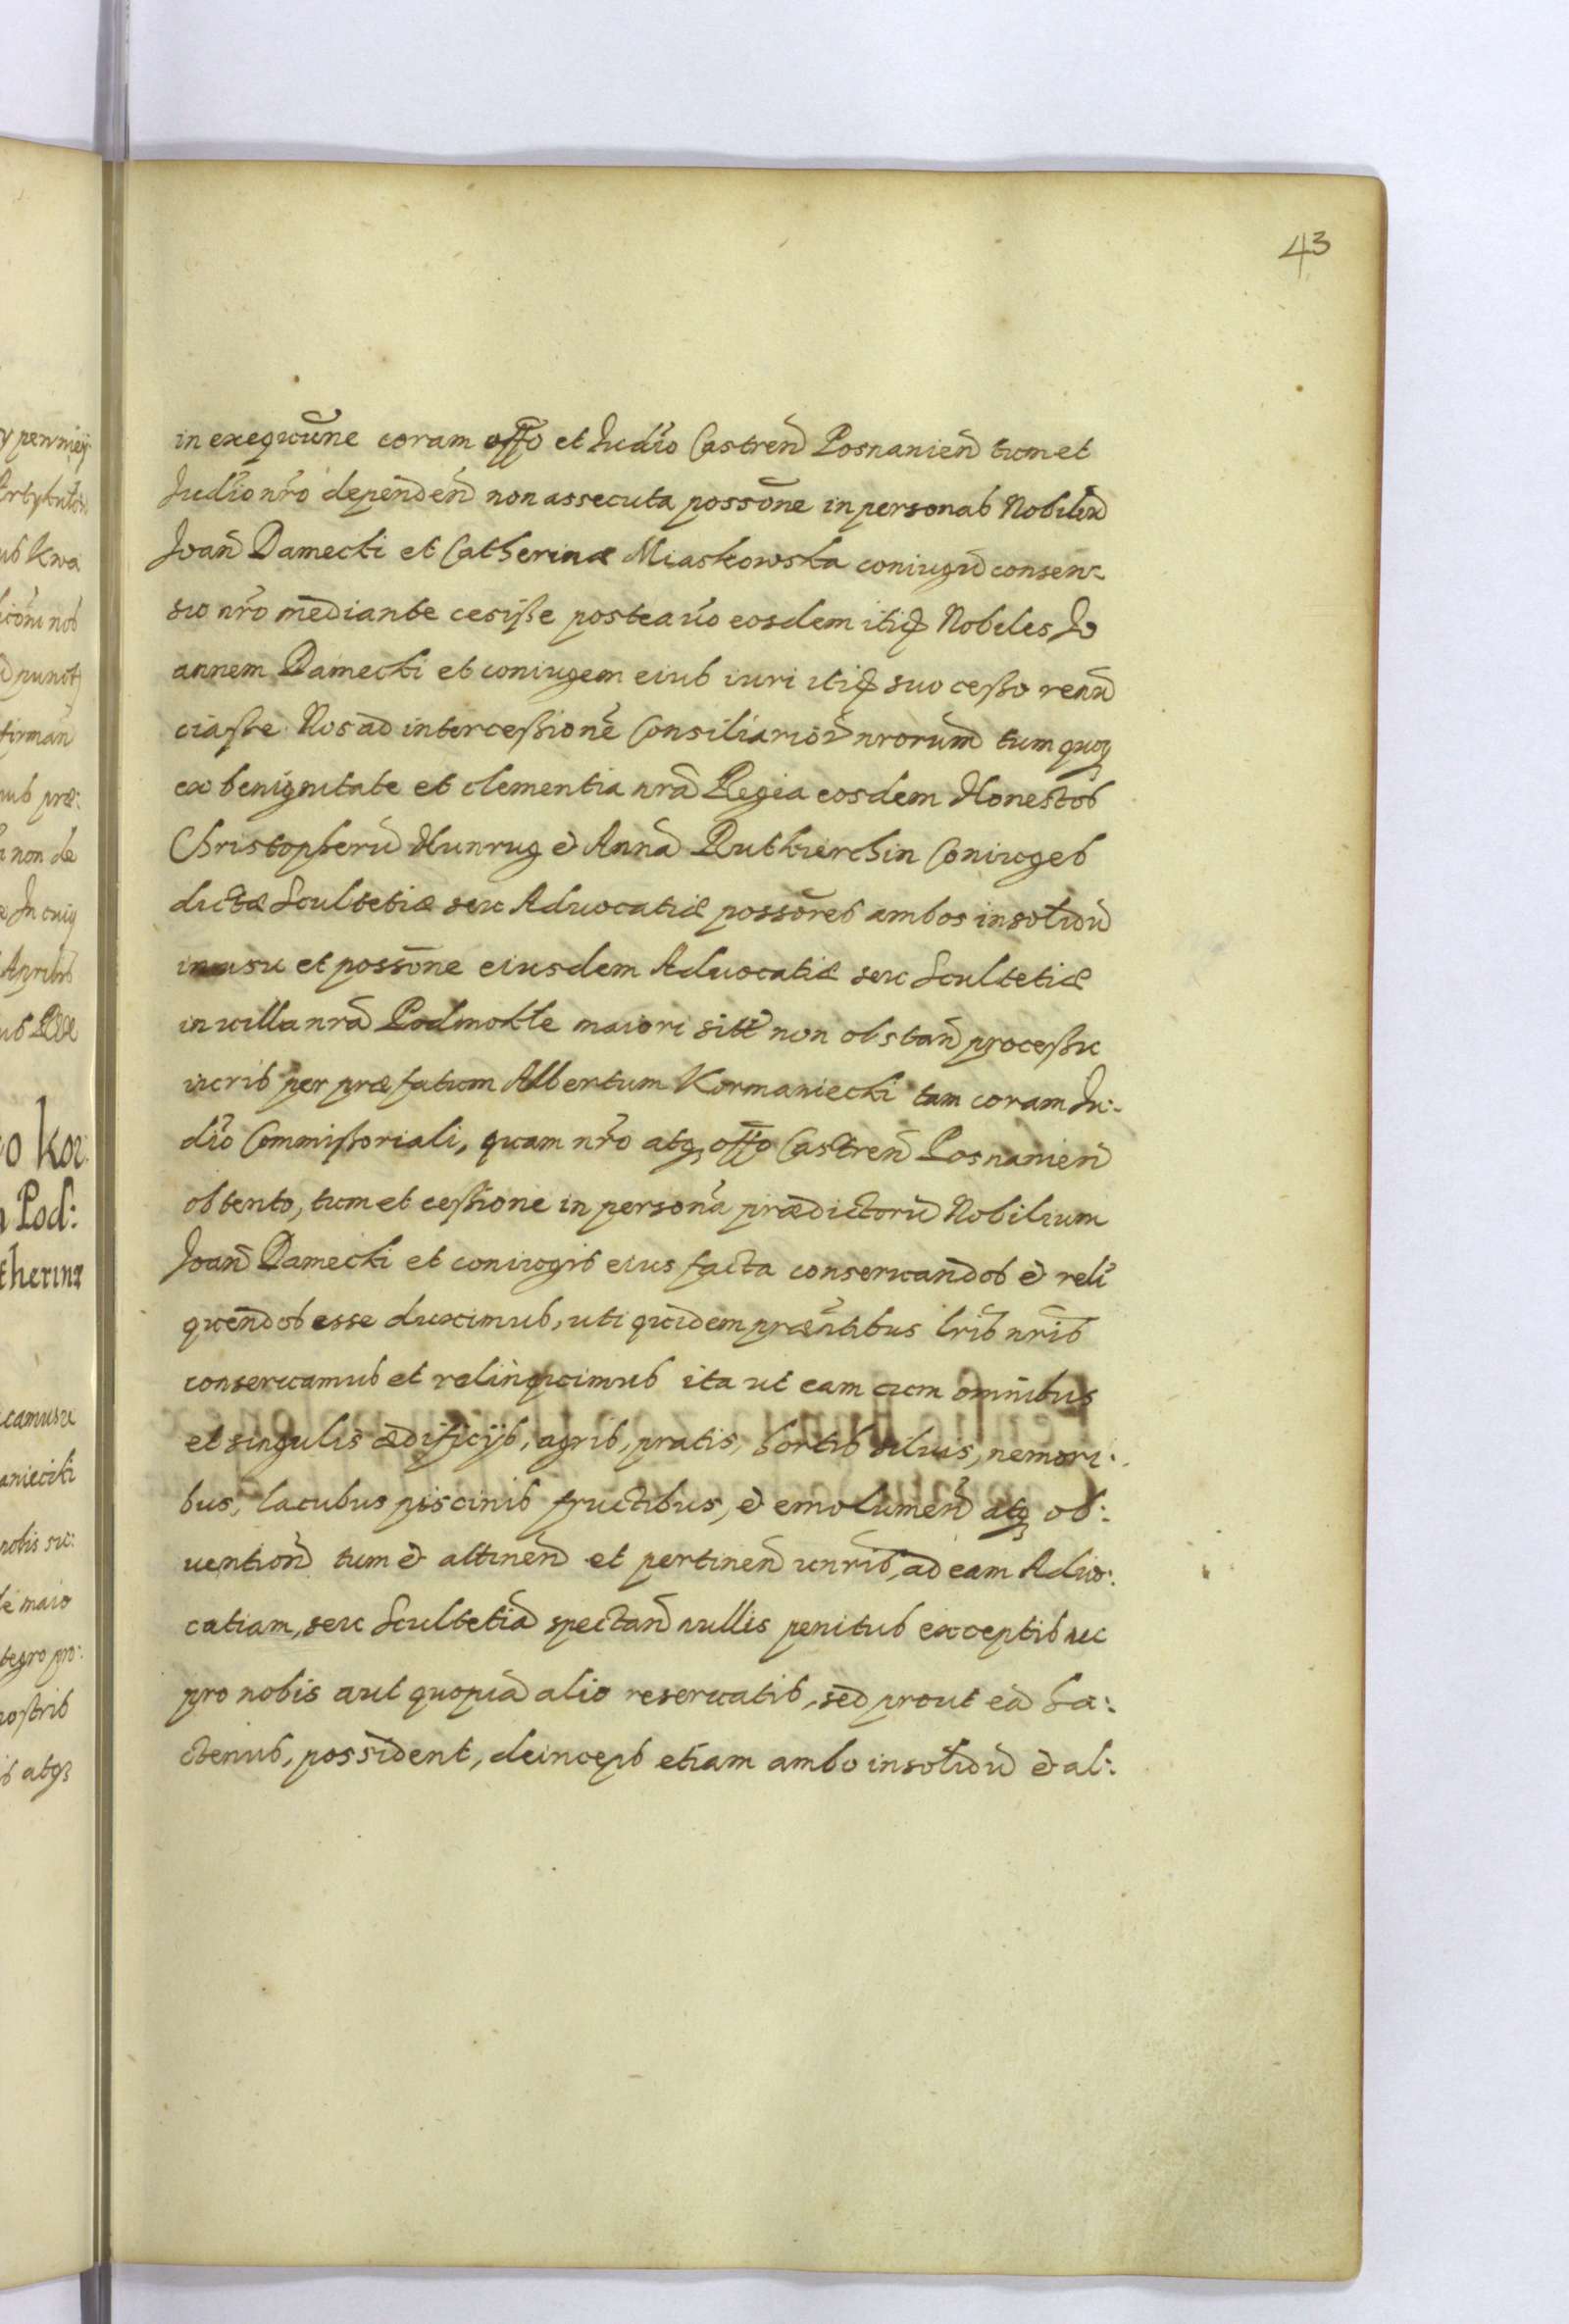 43
in exequūne coram offō et Iudīo Castreñ Posnanieñ tum et
Iudīo nr̄o dependeñ non assecuta possōne in personas Nobiliū
Joañ Damecki et Catherinæ Miaskowska coniugū consen-
su nr̄o mediante cesisse postea v̄o eosdem itiđ Nobeles Jo
annem Damecki et coniugem eius iuri itiđ suo cesso renū
ciasse. Nos ad intercessionē Consiliariorū nrorum̄ tum quoq̃
ex benignitate et clementia nrā Regia eosdem Honestos
Christopherū Hunrug & Annā Rutkierchin Coniuges
dictæ Scultetiæ seu Aduocatiæ possōres ambos insolidū
in usu et possōne eiusdem Aduocatiæ seu Scultetiæ
in uilla nrā Podmokle maiori sitt̄ non obstañ processu
iuris per præfatum Albertum Kormaniecki tam coram Iu:
dīo Commissoriali, quam nr̄o atq̃ offō Castreñ Posnanieñ
obtento, tum et cessione in personā prædictorū Nobilium
Joañ Damecki et coniugis eius facta conseruandos & reli
quendos esse duximus, uti quidem præntibus lris̄ nris̄
conseruamus et relinquimus ita ut eam cum omnibus
et singulis ædificijs, agris, pratis, hortis siluis, nemori:
bus, lacubus piscinis fructibus, & emolumeñ atq̃ ob:
uentioñ tum & attineñ et pertineñ unris̄, ad eam Aduo:
catiam, seu Scultetiā spectañ nullis penitus exceptis nec
pro nobis aut quopiā alio reseruatis, sed prout eā ha:
ctenus, possident, deinceps etiam ambo insolidū & al: